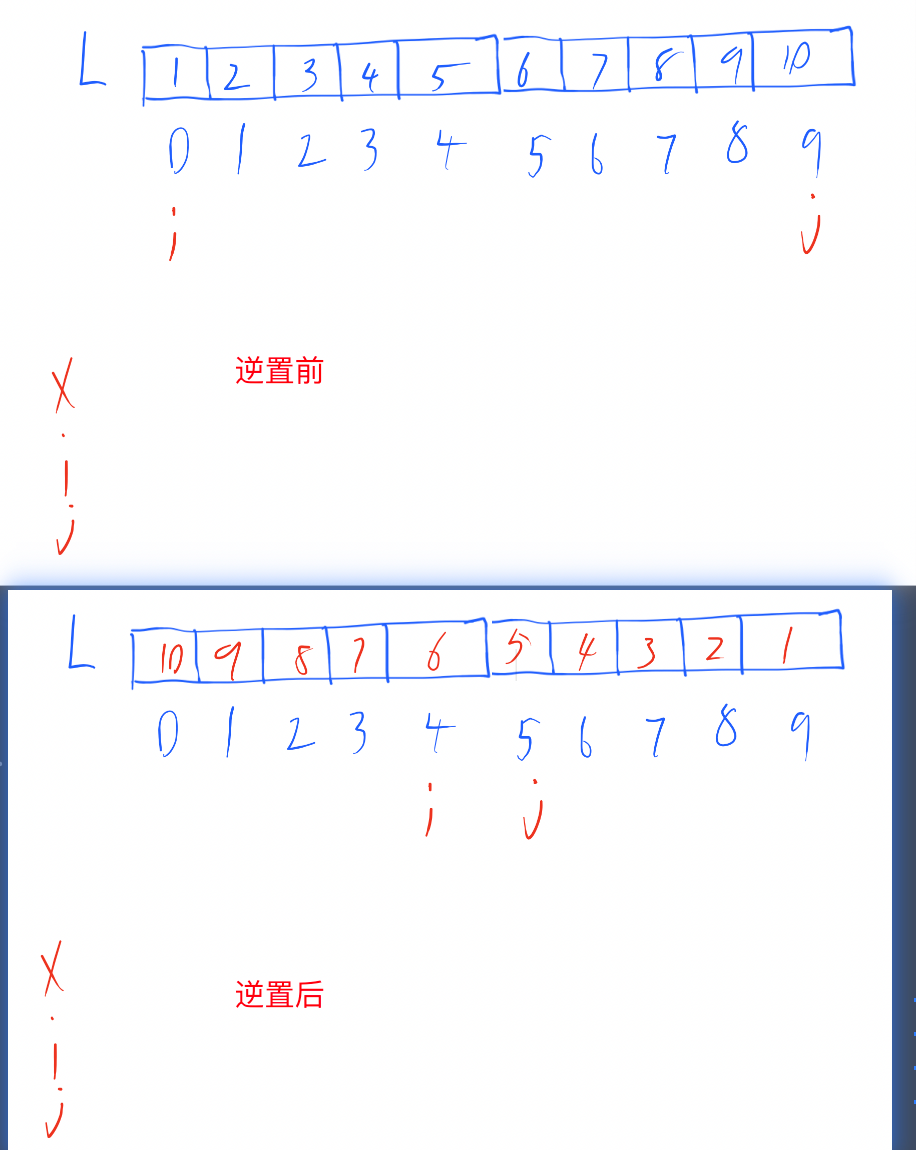 L 1 2 3 4 5 6 7 8 9 10
0 1 2 3 4 5 6 7 8 9
i j
逆置前
X
i
j
L 10 9 8 7 6 5 4 3 2 1
0 1 2 3 4 5 6 7 8 9
i j
X
逆置后
i
j